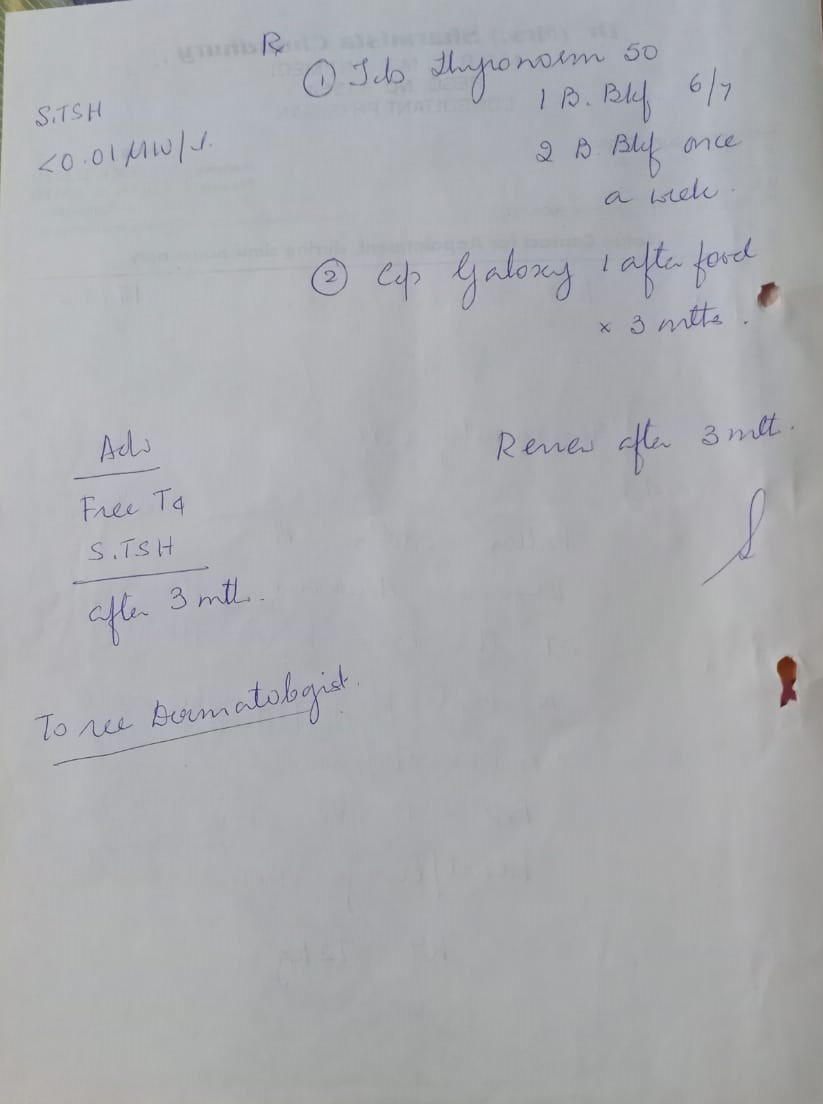 Rx
① Tab Thyronorm 50
1 B. Bkf 6/7
2 B. Bkf once
a week.
S.TSH
<0.01 µIU/
② Cap Galoxy 1 after food
x 3 mths.
Adv
Free T4
S.TSH
after 3 mth.
Review after 3 mth.
To see Dermatologist.